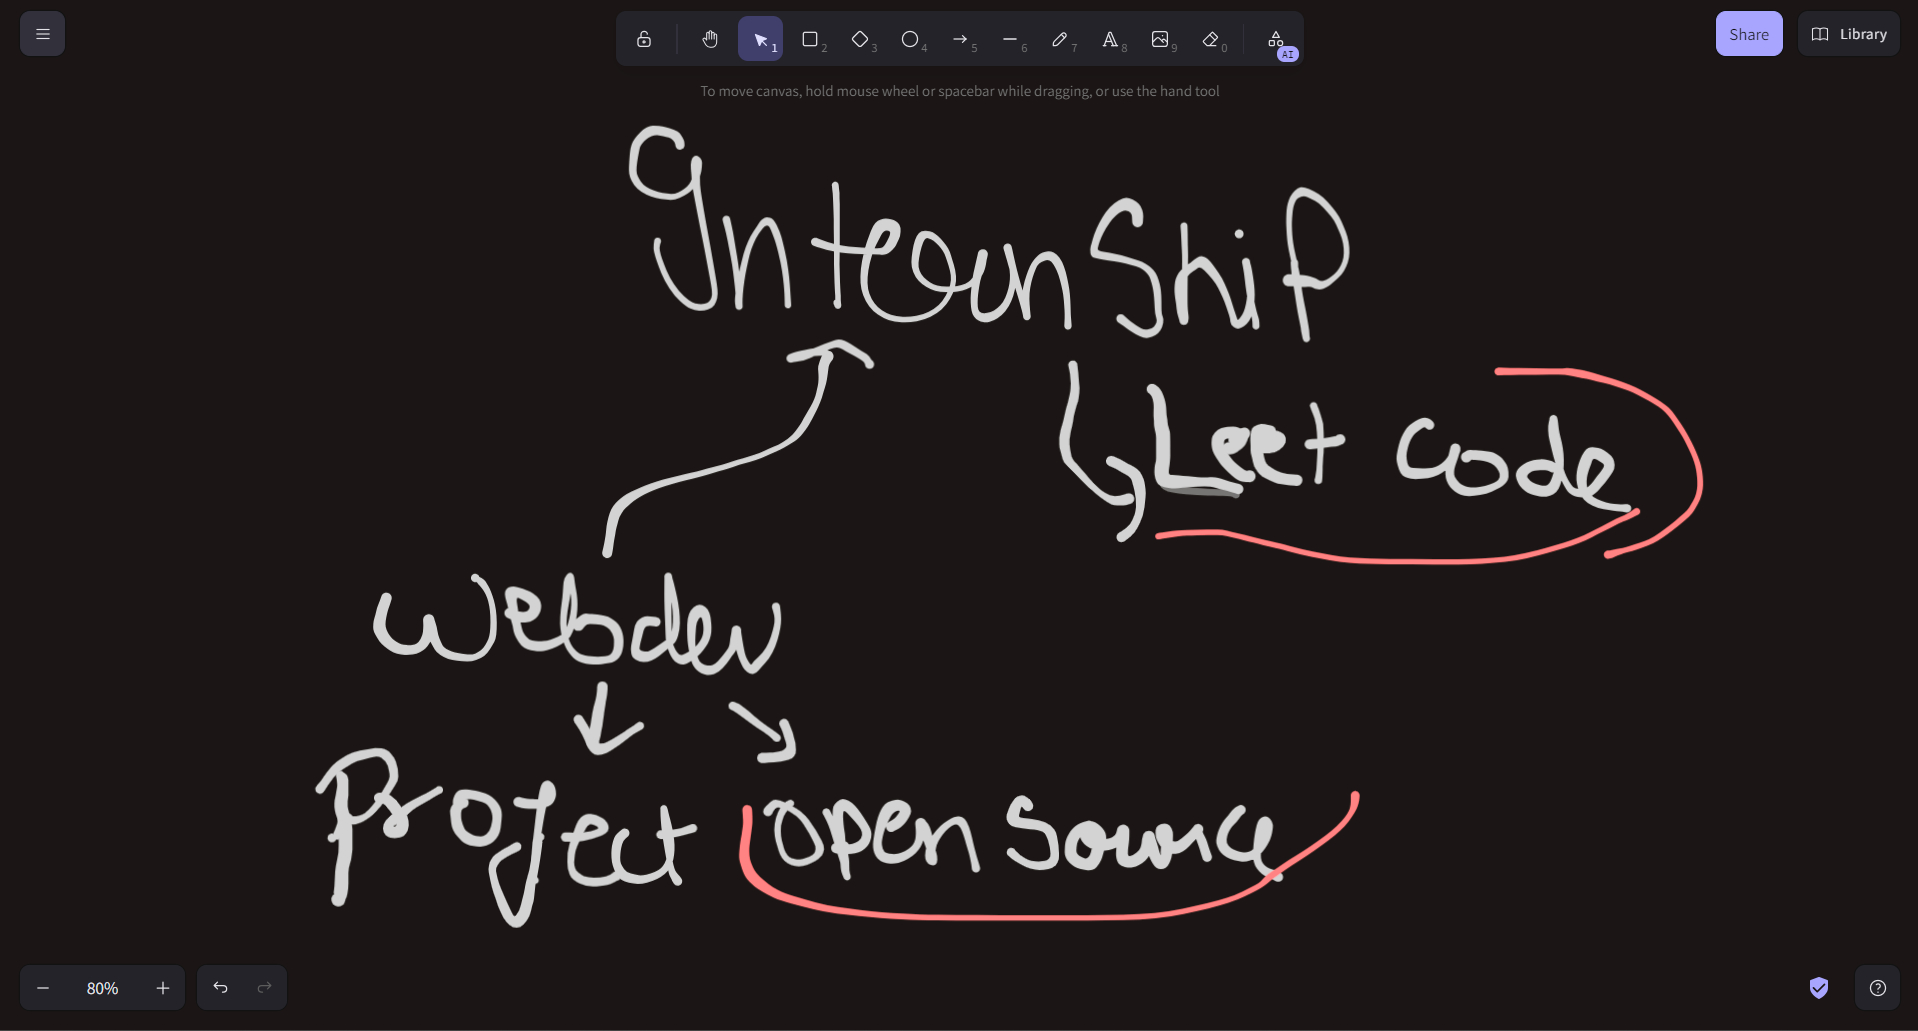 1 2 3 4 5 6 7 8 9 0 AI Share Library
To move canvas, hold mouse wheel or spacebar while dragging, or use the hand tool
InternShip
Leet code
webdev
Project open Source
80%